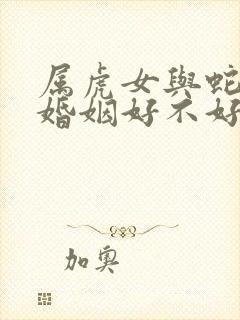 属虎女與蛇
婚姻好不好
加奥